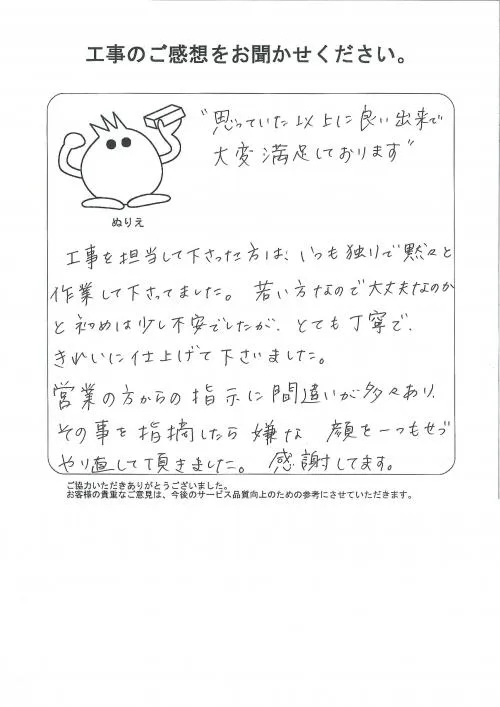 工事のご感想をお聞かせください。
"思っていた以上に良い出来で
大変満足しております"
ぬりえ
工事を担当して下さった方は、いつも独りで黙々と
作業して下さってました。若い方なので大丈夫なのか
と初めは少し不安でしたが、とても丁寧で、
きれいに仕上げて下さいました。
営業の方からの指示に間違いが多々あり、
その事を指摘したら嫌な顔を一つもせづ
やり直して頂きました。感謝してます。
ご協力いただきありがとうございました。
お客様の貴重なご意見は、今後のサービス品質向上のための参考にさせていただきます。